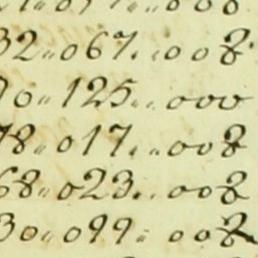 32 " 067 " 008
90 " 125 " 000
78 " 017 " 008
68 " 023 " 008
30 " 099 " 008